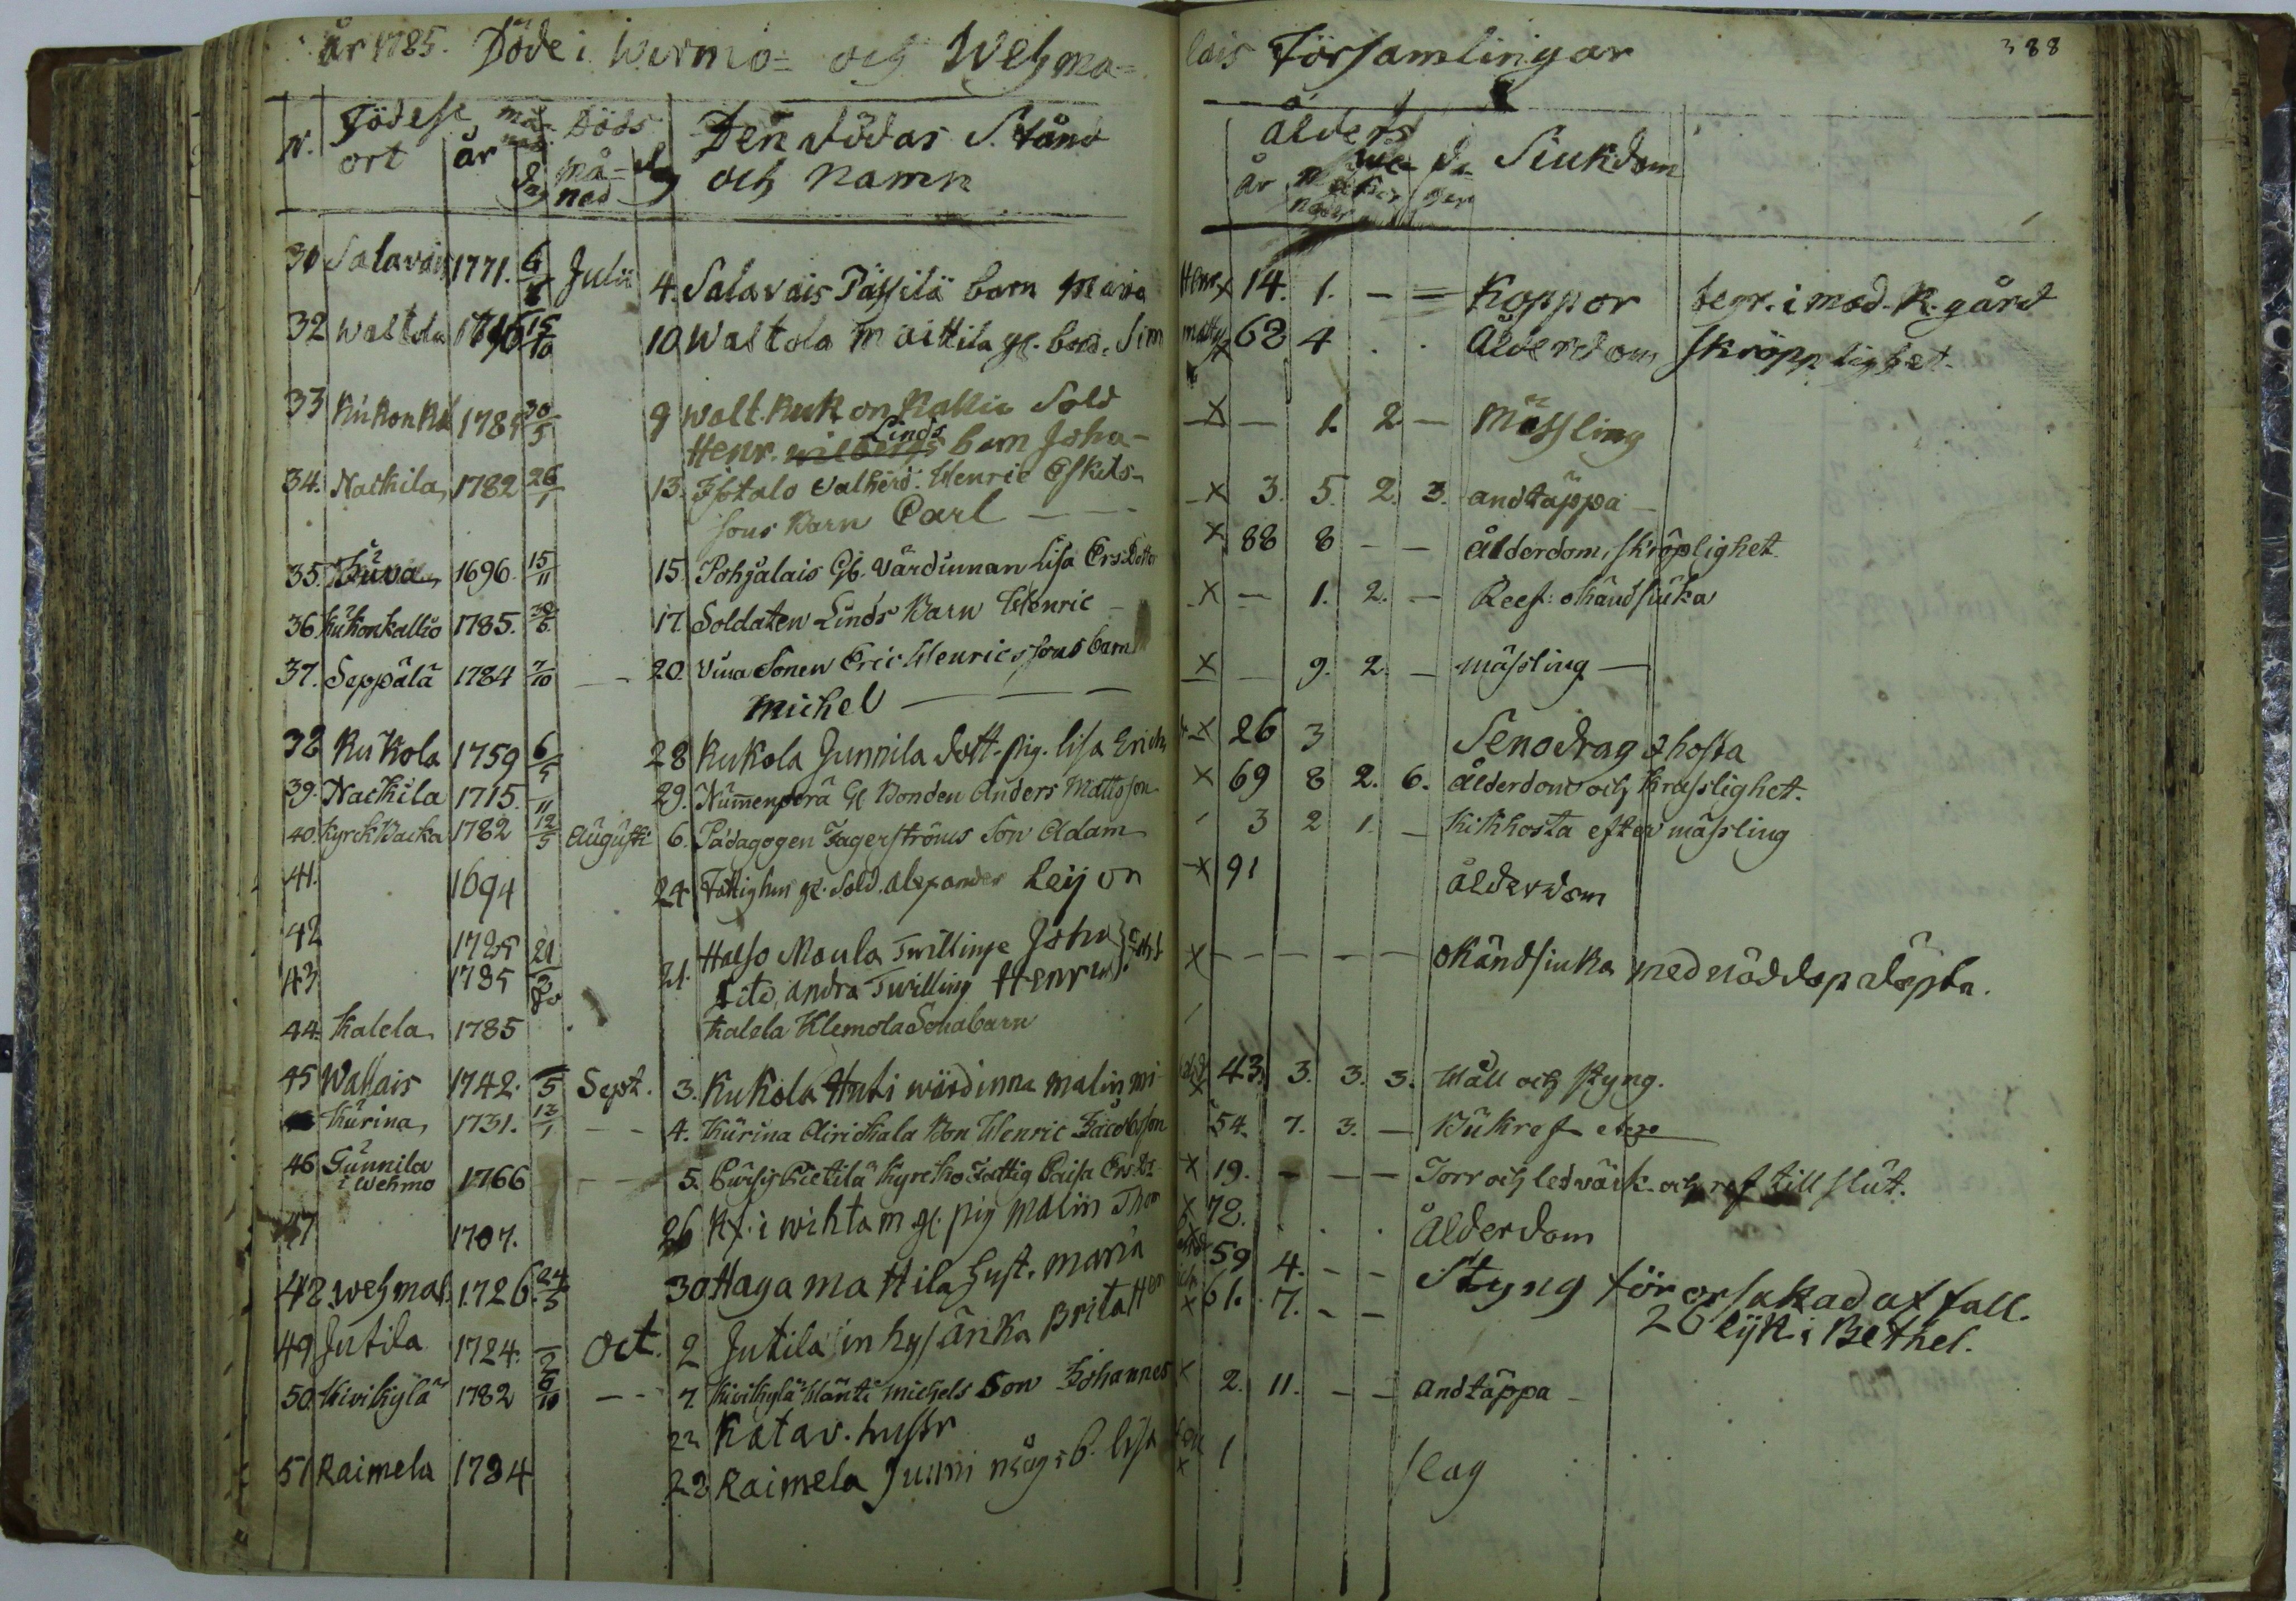 år 1785. Döde i Wirmo= och Wehma= lais Församlingar 388
N. Födelse ort år månad dag Döds månad dag Den dödas Stånd och Namn ålders år månader wekor dagar Siukdom
31 Salavais 1771. 6/ Julii 4. Salavais Pässilä barn Maria Henr x 14. 1. - = Koppor begr. i mod. K. gård
32 Waltola 15/10 10 Waltola Moittila gl. bod. Sim matts x 68 4 . . Ålderdoms skröpplighet.
33 Kukonka 1785 30/5 9 Walt. Kukonkallio Sold
Henr. Linds barn Joha - x - 1. 2 - Mässling
34. Nachila 1782 26/1 13. Isotalo valhërd: Henric Eskels-
sons Barn Carl - x 3. 5. 2. 3. andtäppa
35. 1696. 15/11 15. Pohjalais Gb. Värdinnan Lisa Ersdotter x 88 8 - - Ålderdom, skröplighet
36. Kukonkallio 1785. 30/5 17. Soldaten Linds Barn Henric - x - 1. 2. - Reef: okänd siuka
37. Seppälä 1784 7/10 - 20. Sonen Eric Henricssons barn
Michel - x - 9. 2. - mässling -
38 Kukola 1759 6/4 28 Kukola Junnila dott. pig. lisa Erich x 26 3 Senodrag & hosta
39. Nachila 1715. /11 29. Nummenperä Gl Bonden Anders Mattsson x 69 8 2. 6. Ålderdom och Krasslighet.
40. KyrchBacka 1782 12/5 Augusti 6. Pädagogen Fagerströms Son Adam 3 2 1. - Kikhosta efter mässling
41. 1694 24 Fattighm gl. Sold. Alexander Leijon x 91 Ålderdom
42 1785 21 Halso Moula Twillinge Joha
43 1785 21. Dito, andra Twilling Henric x - - - - - okändsiuka med nöddop döpta.
44. Kalela 1785 Kalela Klemola Sonabarn
45 Wallais 1742. /5 Sept. 3. Kukola Huti wärdinna malin mi x 43. 3. 3. 3. Håll och styng.
Kürina 1731. 13/1 - - 4. Kürina Airickala Bon Henric Jacobsson 54. 7. 3. - Bukref
46 Gunnila i Wehmo 1766 - - 5. Pietilä Kyrcko Fattig Caisa Ers Dr x 19. - - - Torr och ledvärk och ref till slut.
47 1707. 26 Kf. i wihtam gl. pig malin Thom x 78. . . Ålderdom
48 Wehmal. 1726. 24/5 30 Haga mattila Hust. maria 59 4. - - Styng förorsakad af fall.
49 Jutila 1724. /2 Oct. 2 Jutila inhys änka Brita Hen x 61. 7. - - 26 lijk i Bethel.
50. Kivikylä 1782 8/10 - - 7. Kivikylä Mänti Michels Son Johannes x 2. 11. - - Andtäppa -
22 Katav. hustr
51 Raimela 1784 22 Raimela Junni mågs b. lisa x 1 slag